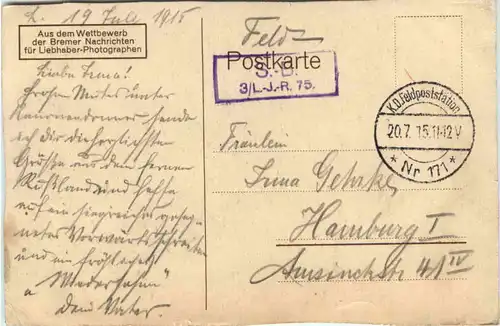 L. 19 Juli 1915
Aus dem Wettbewerb
der Bremer Nachrichten
für Liebhaber-Photographen
Feld
Postkarte
S.-B.
3/L.-J.-R. 75.
K.D.Feldpoststation
20.7.15.11-12V
* Nr 171 *
Liebe Irma!
Frohen Mutes unter
Kanonendonner sende
ich Dir die herzlichsten
Grüße aus dem fernen
Rußland und hoffe
auf ein siegreiches geseg-
netes Vorwärtsschreiten
und ein fröhliches
"Wiedersehn"
Dein Vater.
Fräulein
Irma Gehrke
Hamburg I
Amsinckstr 41 IV